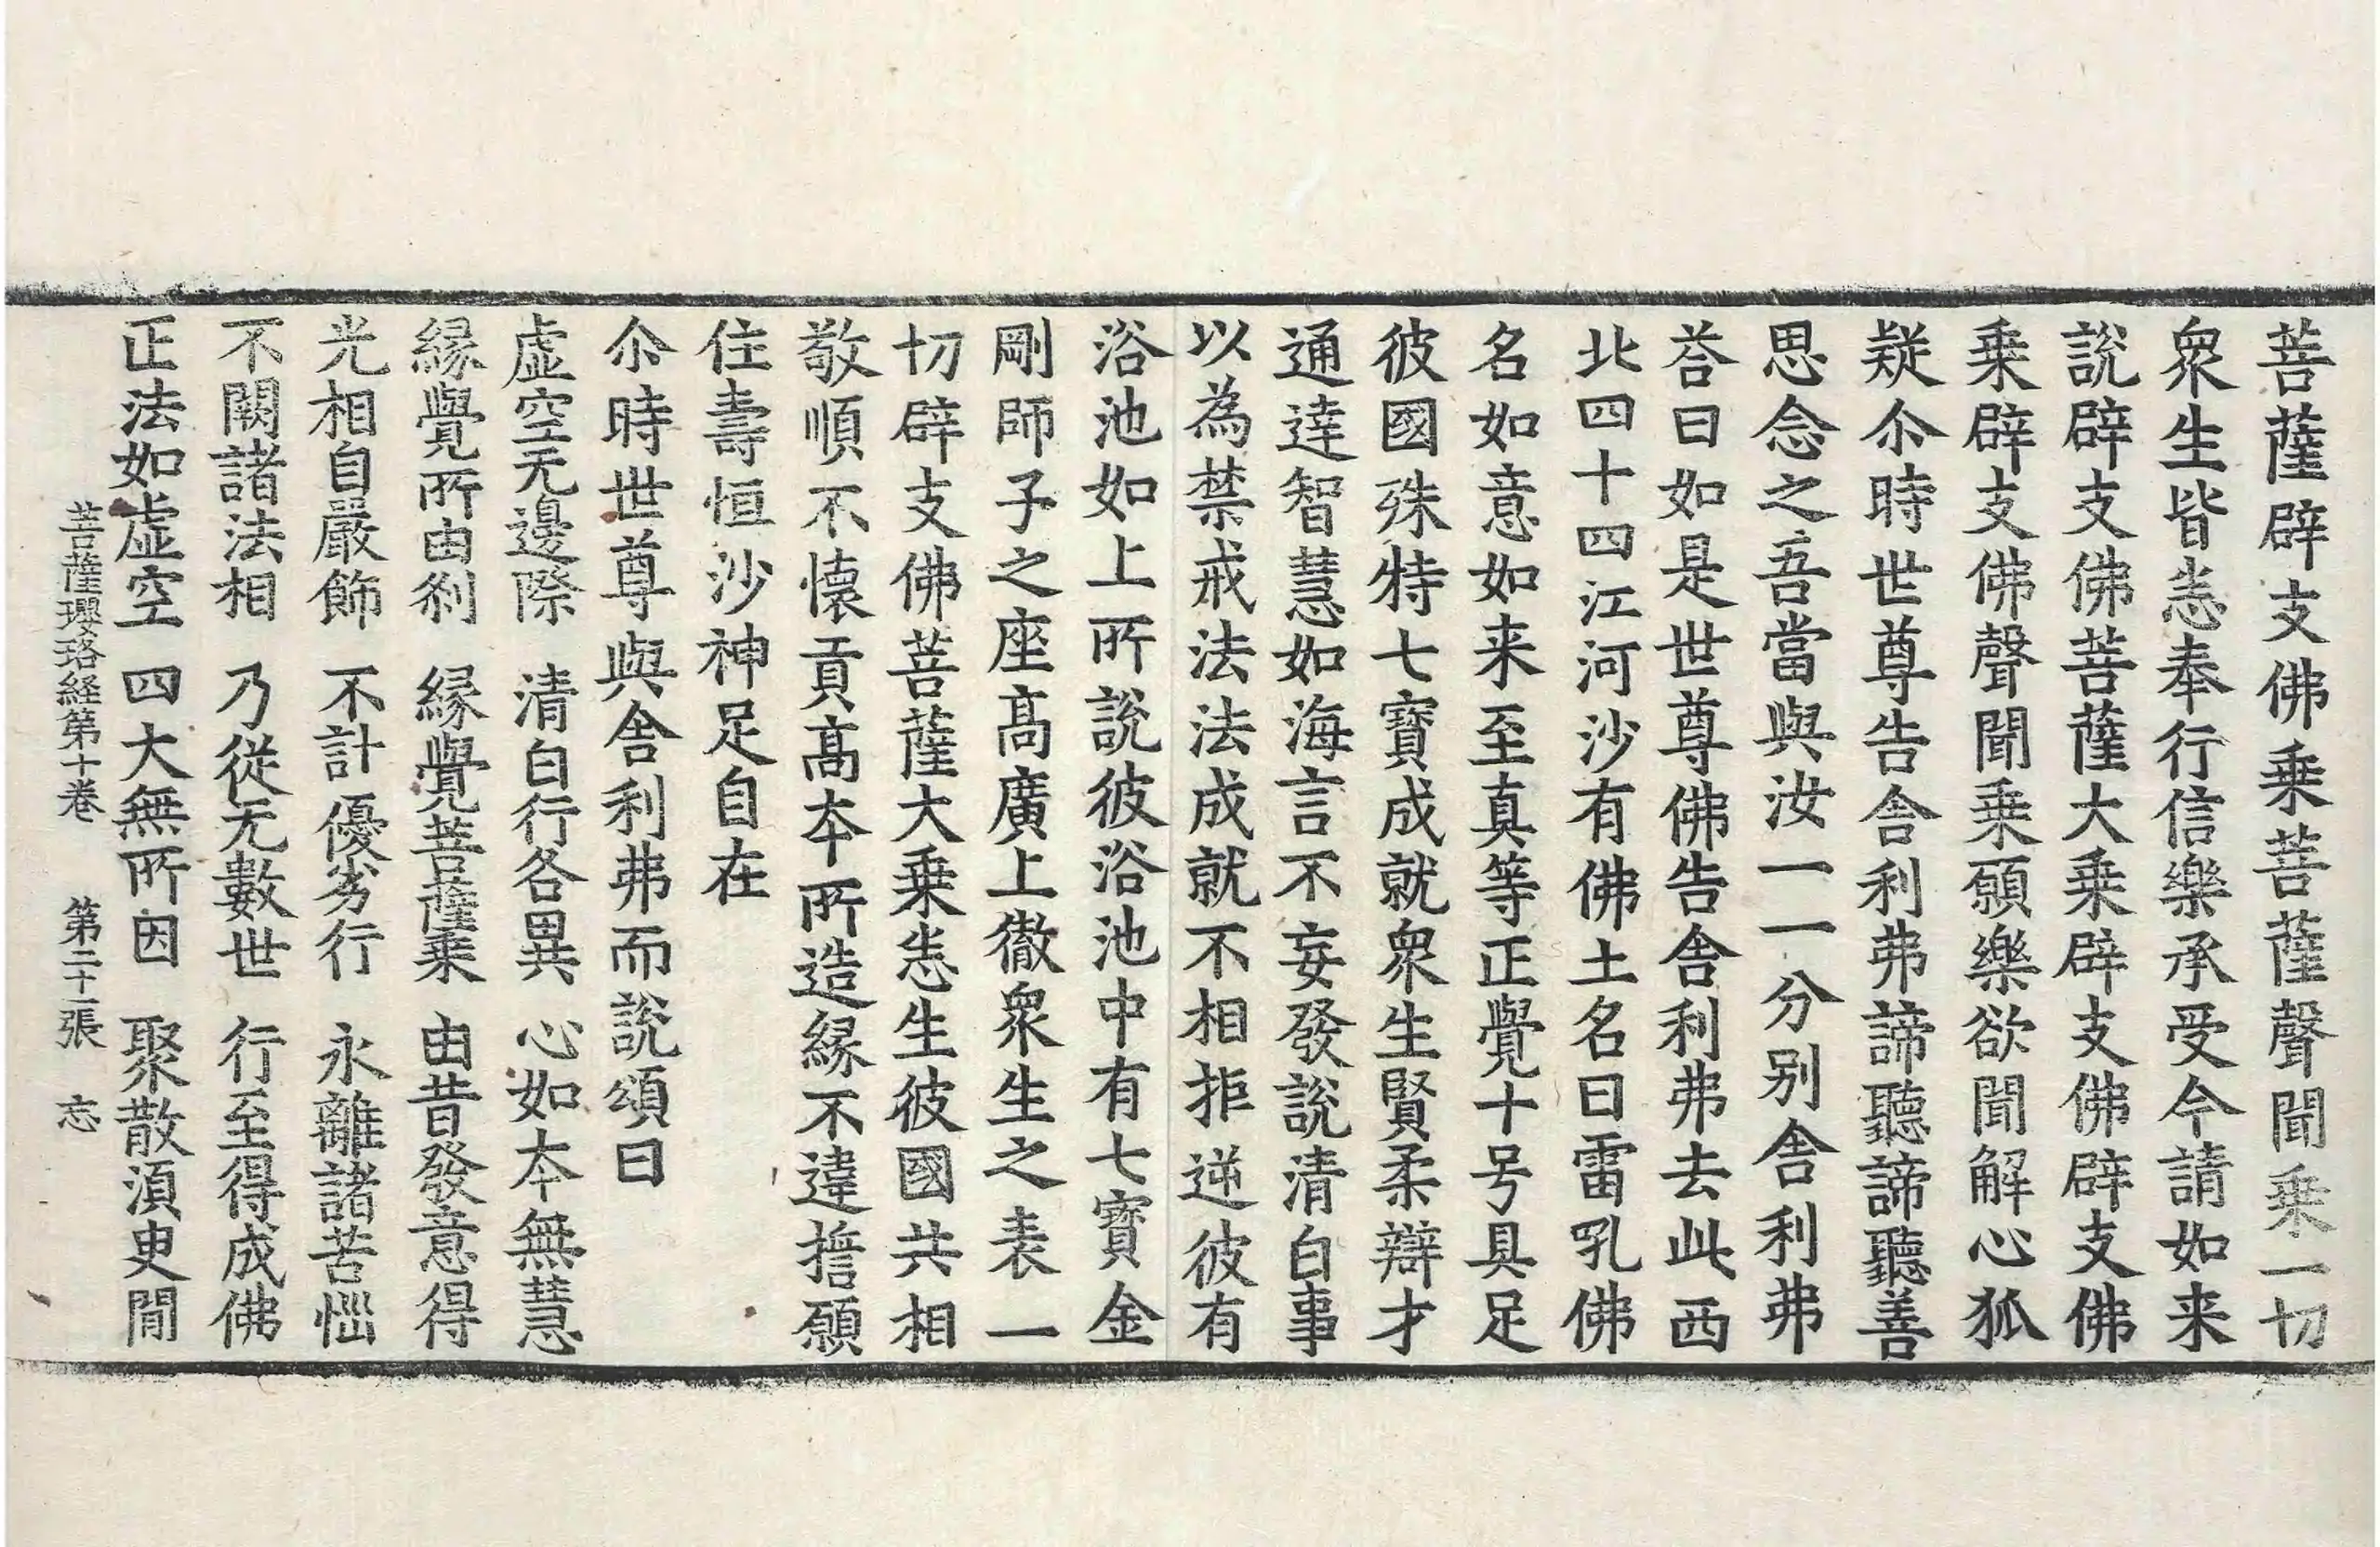 菩薩辟支佛乗菩薩聲聞乗一切
衆生皆悉奉行信樂承受今請如来
說辟支佛菩薩大乗辟支佛辟支佛
乗辟支佛聲聞乗願樂欲聞解心狐
疑尒時世尊告舎利弗諦聽諦聽善
思念之吾當與汝一一分别舎利弗
荅曰如是世尊佛告舎利弗去此西
北四十四江河沙有佛土名曰雷吼佛
名如意如来至真等正覺十号具足
彼國殊特七寶成就衆生賢柔辯才
通達智慧如海言不妄發說清白事
以為禁戒法法成就不相拒逆彼有
浴池如上所說彼浴池中有七寶金
剛師子之座髙廣上徹衆生之表一
切辟支佛菩薩大乗悉生彼國共相
敬順不懐貢髙夲所造縁不違誓願
住壽恒沙神足自在
尒時世尊與舎利弗而說頌曰
虚空无邊際　清白行各異　心如夲無慧
縁覺所由剎　縁覺菩薩乗　由昔發意得
光相自嚴飾　不計優劣行　永離諸苦惱
不闕諸法相　乃從无數世　行至得成佛
正法如虚空　四大無所因　聚散湏臾間
菩薩瓔珞経第十卷　第二十二張　忘